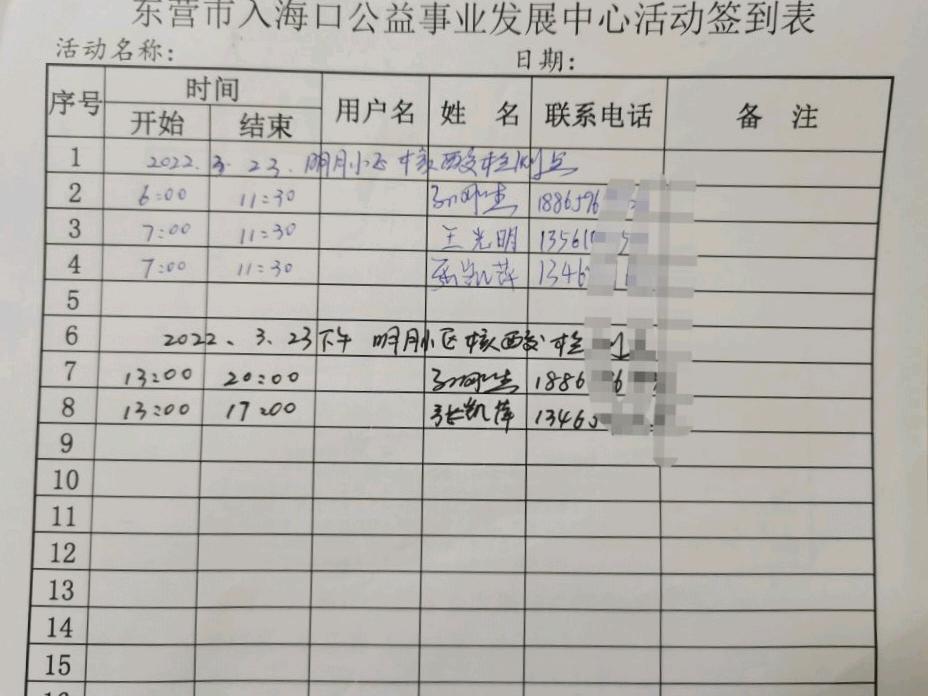 东营市入海口公益事业发展中心活动签到表
活动名称: 日期:
序号 时间 用户名 姓 名 联系电话 备 注
开始 结束
1 2022.3.23.明月小区核酸检测点
2 6:00 11:30 1886596
3 7:00 11:30 王光明 13561
4 7:00 11:30 凯萍 1346
5
6 2022.3.23下午 明月小区核酸检
7 13:00 20:00 1886
8 13:00 17:00 张凯萍 1346
9
10
11
12
13
14
15